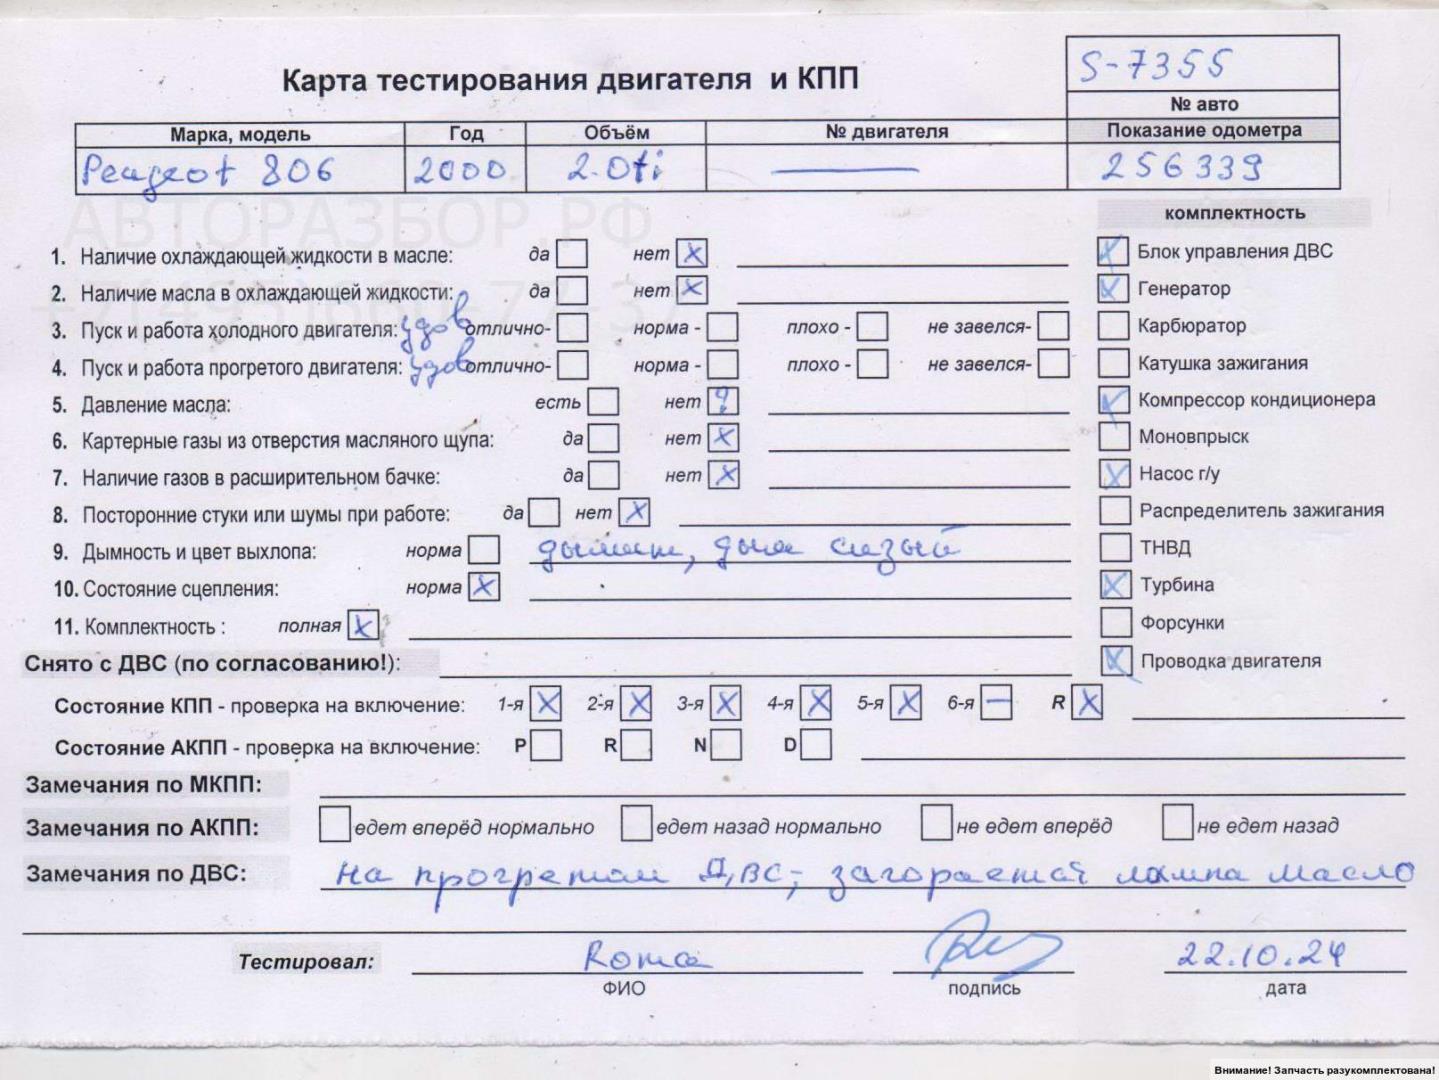 S-7355
Карта тестирования двигателя и КПП
№ авто
Марка, модель Год Объём № двигателя Показание одометра
Peugeot 806 2000 2.0ti — 256339
АВТОРАЗБОР.РФ
комплектность
1. Наличие охлаждающей жидкости в масле: да нет x Блок управления ДВС
2. Наличие масла в охлаждающей жидкости: да нет x Генератор
3. Пуск и работа холодного двигателя: удов отлично- норма - плохо - не завелся- Карбюратор
4. Пуск и работа прогретого двигателя: удов отлично- норма - плохо - не завелся- Катушка зажигания
5. Давление масла: есть нет ? Компрессор кондиционера
6. Картерные газы из отверстия масляного щупа: да нет x Моновпрыск
7. Наличие газов в расширительном бачке: да нет x Насос г/у
8. Посторонние стуки или шумы при работе: да нет x Распределитель зажигания
9. Дымность и цвет выхлопа: норма дымит, дым сизый ТНВД
10. Состояние сцепления: норма x Турбина
11. Комплектность : полная x Форсунки
Снято с ДВС (по согласованию!): Проводка двигателя
Состояние КПП - проверка на включение: 1-я x 2-я x 3-я x 4-я x 5-я x 6-я — R x
Состояние АКПП - проверка на включение: P R N D
Замечания по МКПП:
Замечания по АКПП: едет вперёд нормально едет назад нормально не едет вперёд не едет назад
Замечания по ДВС: На прогретом ДВС, загорается лампа масло
Тестировал: Roma 22.10.24
ФИО подпись дата
Внимание! Запчасть разукомплектована!